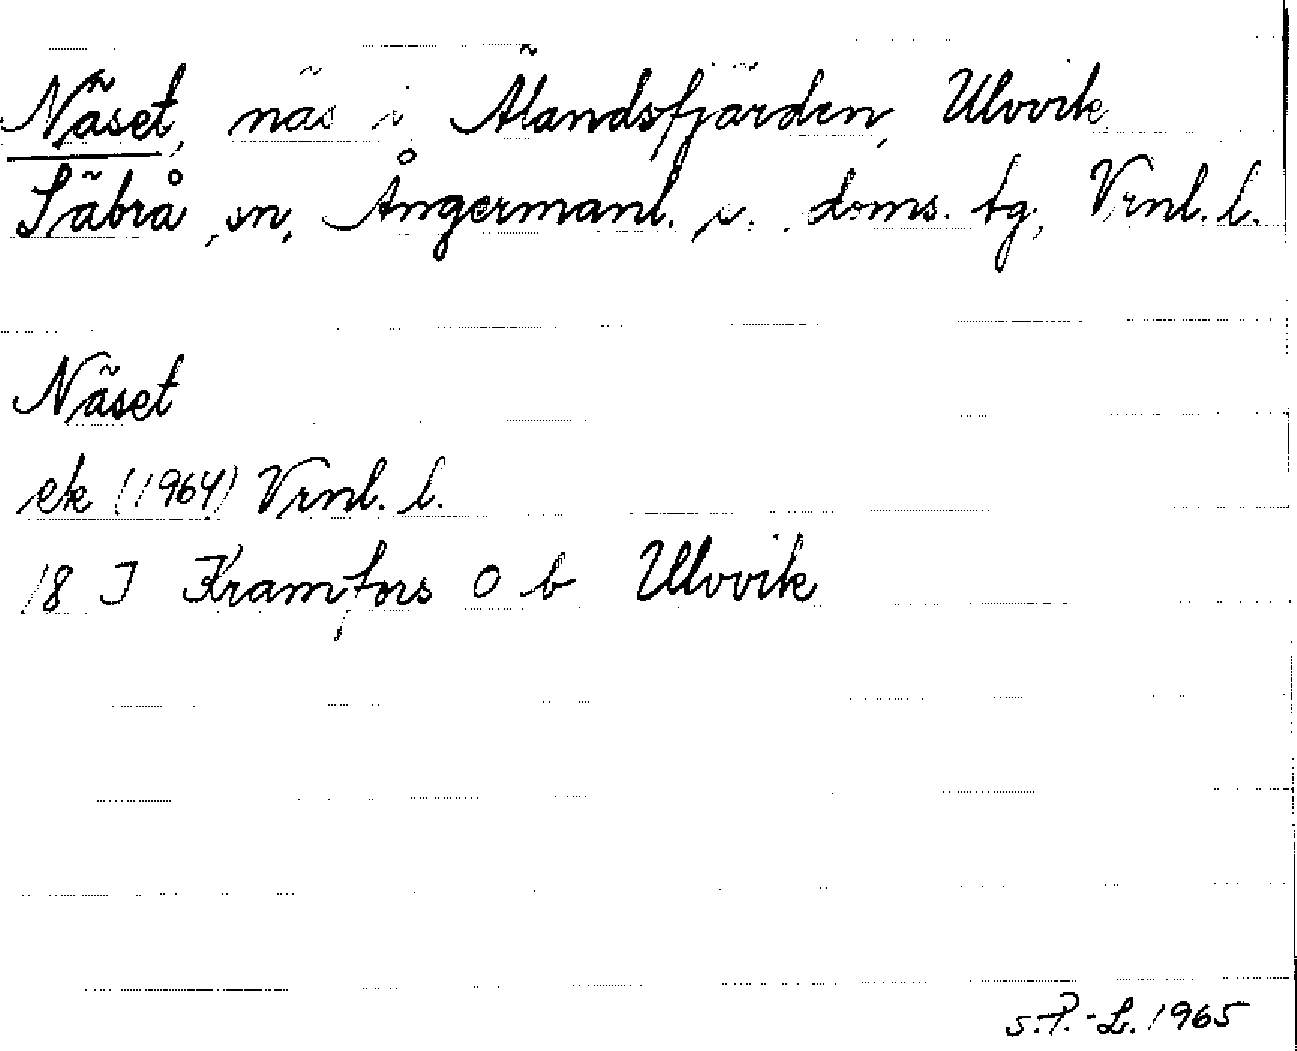 Näset, näs i Älandsfjärden, Ulvvik
Säbrå sn, Ångermanl. s. doms. tg, Vrnl. l.
Näset
ek (1964) Vrnl. l.
18 I Kramfors 0 b Ulvvik
S.P.-L. 1965